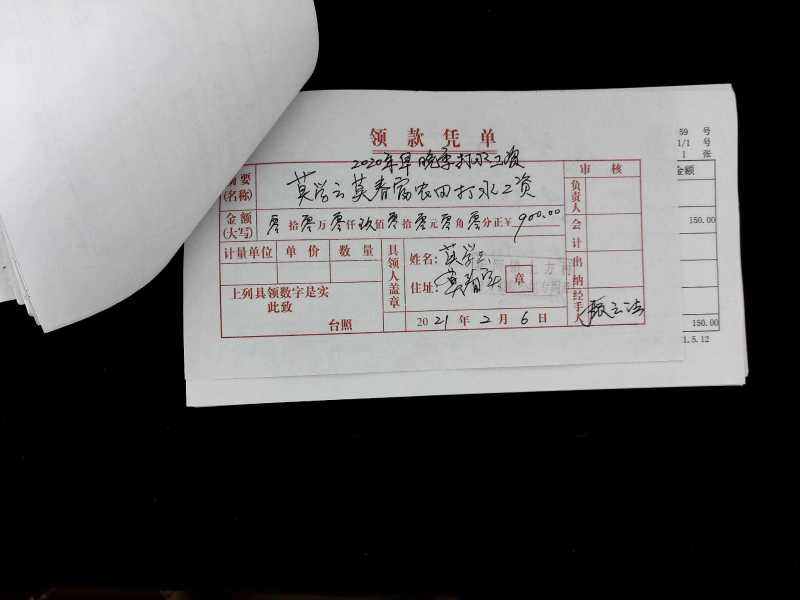 领款凭单
2020年早晚季打水工资
摘要(名称) 莫学云莫春富农田打水工资
审核
金额(大写) 零拾零万零仟玖佰零拾零元零角零分正¥900.00
负责人
会计
出纳
经手人
计量单位 单价 数量
具领人盖章
姓名：莫学云
住址：莫春富
章
上列具领数字是实
此致
台照
2021年2月6日
59 号
1/1 号
1 张
金额
150.00
150.00
1.5.12